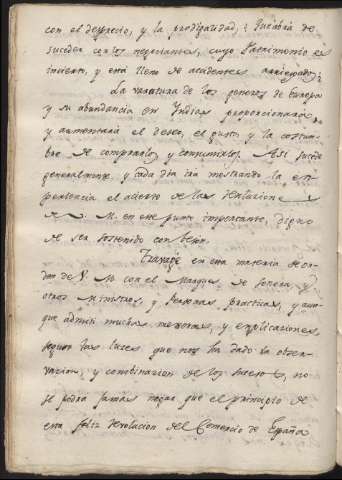 con el desprecio, y la prodigalidad; ¿Que habrá de
suceder con los negociantes, cuyo Patrimonio es
incierto, y está lleno de accidentes arriesgados?
La baratura de los generos de Europa
y su abundancia en Indias proporcionará,
y aumentará el deseo, el gusto, y la costum-
bre de comprarlos, y consumirlos. Asi sucede
generalmente, y cada dia irá mostrando la ex-
periencia el acierto de las resoluciones
de V. M. en este punto importante, digno
de ser sostenido con teson.
Trabajé en esta materia de or-
den de V. M. con el Marques de Sonora, y
otros Ministros, y Personas practicas, y aun-
que admiti muchas mejoras, y explicaciones,
segun las luces que nos ha dado la obser-
vacion, y combinacion de los sucesos, no
se podrá jamas negar que el principio de
esta feliz revolucion del Comercio de España